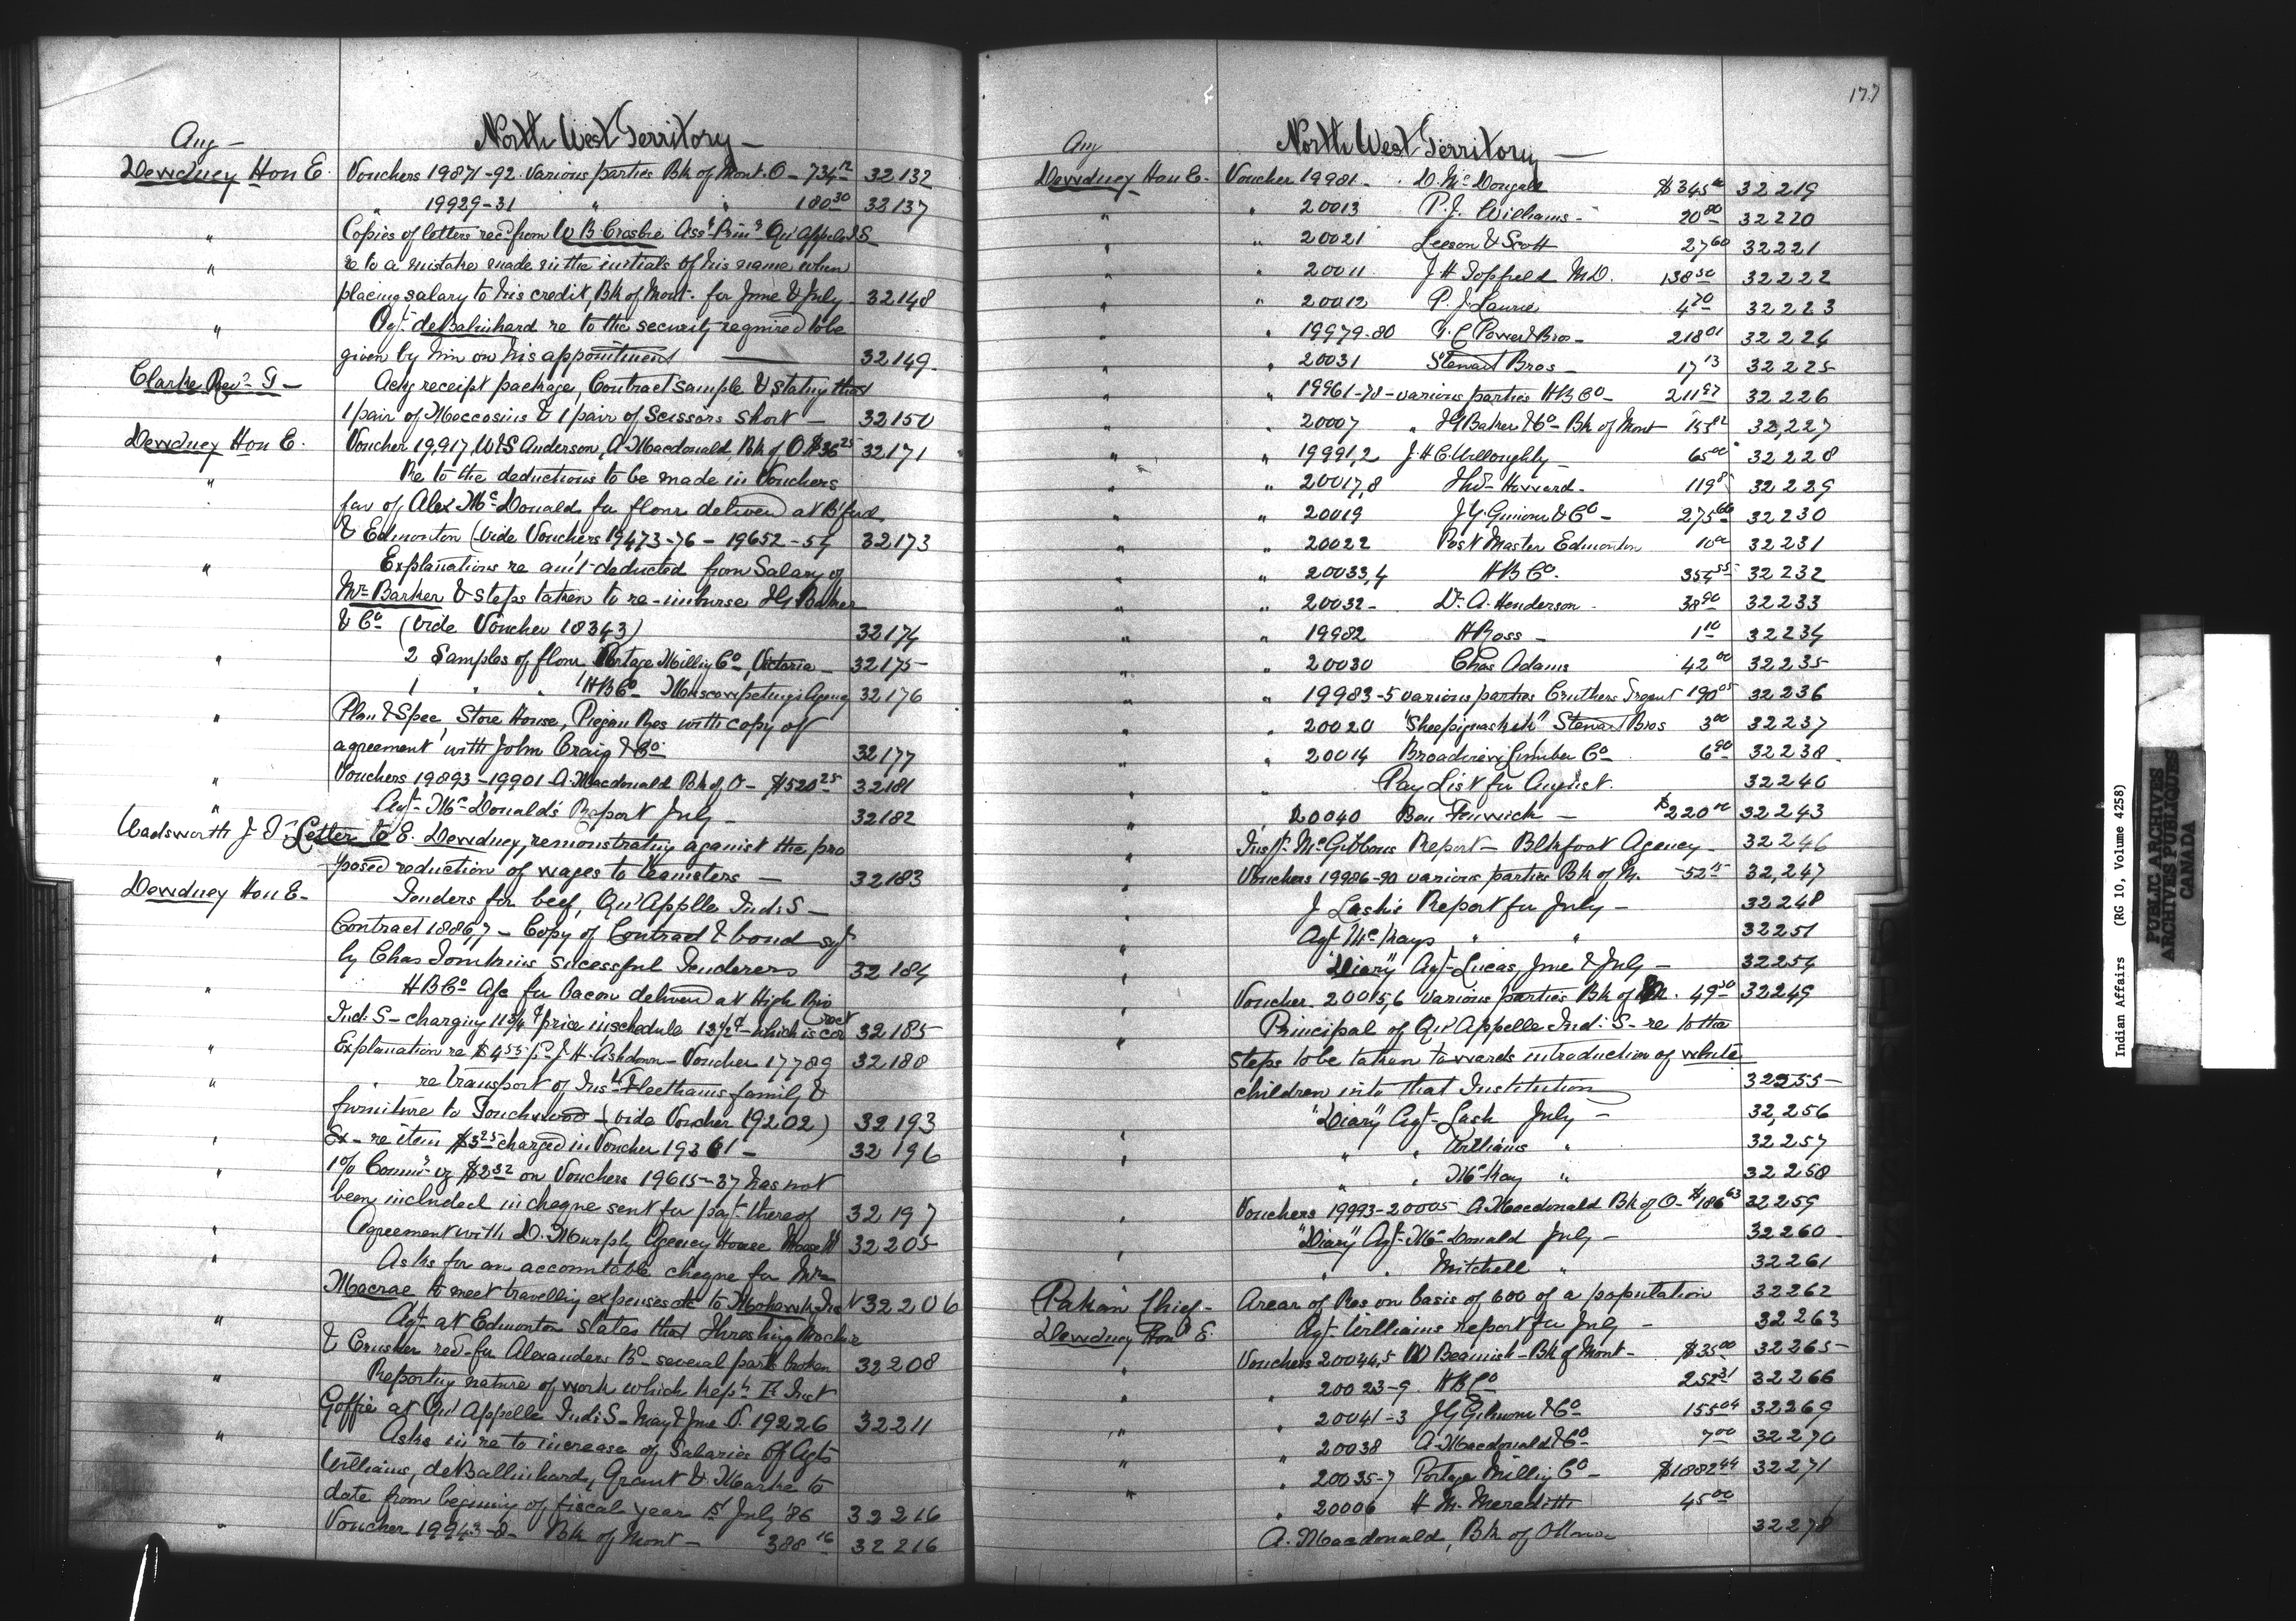 Aug -
North West Territory -
Dewdney Hon E. Vouchers 19871-92 various parties Bk of Mont. O - 734 12 32132
" 19929-31 " " 180 30 32137
" Copies of letters rec'd from W B Crosbie Ass't Prin'l Qu'Appelle I S
" re to a mistake made in the initials of his name when
placing salary to his credit, Bk of Mont. for June & July 32148
" Agt. deBalinhard re to the security required to be
given by him on his appointment 32149
Clarke Rev'd G - Ackg receipt package, Contract sample & stating that
1 pair of Moccasins & 1 pair of Scissors short - 32150
Dewdney Hon E. Voucher 19,917, W & S Anderson, A Macdonald, Bk of O. $36 25 32171
" Re to the deductions to be made in Vouchers
fav of Alex McDonald for flour delivered at B'ford
& Edmonton (vide Vouchers 19473-76 - 19652-54 32173
" Explanations re am't deducted from Salary of
Mr Barker & steps taken to re-imburse I G Baker
& Co (vide Voucher 18343) 32174
" 2 Samples of flour Portage Milling Co, Victoria 32175
1 " " HB Co Muscowpetung's Agency 32176
" Plan & Spec, Store House, Piegan Res with copy of
agreement with John Craig & Co 32177
" Vouchers 19893-19901 A. Macdonald Bk of O - $520 25 32181
" Agt. McDonald's Report July - 32182
Wadsworth J. T. Letter to E. Dewdney, remonstrating against the pro
posed reduction of wages to teamsters - 32183
Dewdney Hon E - Tenders for beef, Qu'Applle Ind: S -
Contract 1886,7 - Copy of Contract & bond sg'd
by Chas Tomkins successful Tenderers 32184
" HB Co a/c for bacon delivered at High Riv
Ind: S - charging 11 3/4 ¢ price in schedule 13 1/2 ¢ - which is cor rect 32185
" Explanation re $4.55 J. H. Ashdown - Voucher 17789 32188
" re transport of Ins't Fleetham's family &
furniture to Touchwood - (vide Voucher 19202) 32193
" Ex - re item $3 25 charged in Voucher 19361 - 32196
" 1% Comm'n vz $2 32 on Vouchers 19615-37 has not
been included in cheque sent for pay't thereof 32197
" Agreement with D. Murphy Agency House Moose M 32205
" Asks for an accountable cheque for Mr
Macrae to meet travelling expenses etc to Mohawk Ins 32206
" Agt. at Edmonton states that Threshing Machine
& Crusher rec'd for Alexanders Bd - several parts broken 32208
" Reporting nature of work which kept Inst
Goffie at Qu'Appelle Ind: S - May & June V. 19226 32211
" Asks in re to increase of Salaries of Agts
Williams, deBallinhard, Grant & Markle to
date from begining of fiscal year 1st July '86 32216
" Voucher 19943-8 - Bk of Mont - 388 16 32216
177
Aug
North West Territory -
Dewdney Hon E. Voucher 19981 - D. McDougall $345 00 32219
" " 20013 P. J. Williams - 20 80 32220
" " 20021 Leeson & Scott 27 60 32221
" " 20011 J H Topfield M.D. 138 50 32222
" " 20012 P. J. Laurie 4 70 32223
" " 19979-80 T. C Power & Bros - 218 01 32224
" " 20031 Stewart Bros - 17 13 32225
" " 19961-78 - various parties HB Co - 211 97 32226
" " 20007 " I G Baker & Co - Bk of Mont 153 82 32,227
" " 19991,2 J. H. C. Willoughby - 65 00 32228
" " 20017,8 Tho's Howard - 119 8 32229
" " 20019 J. G. Gimour & Co - 275 00 32230
" " 20022 Post Master Edmonton 10 00 32231
" " 20033,4 HB Co. 354 55 32232
" " 20032 - Dr. A. Henderson 38 90 32233
" " 19982 H Ross - 1 10 32234
" " 20030 Chas Adams 42 00 32235
" " 19983-5 various parties Cruthers 190 05 32236
" " 20020 Stewart Bros 3 00 32237
" " 20014 Broadview Lumber Co 6 90 32238
" Pay List for August. 32240
" " 20040 Ben Fenwick - $220 00 32243
" Insp. McGibbons Report - Blkfoot Agency - 32246
" Vouchers 19986-90 various parties Bk of M. - 52 15 32,247
" J Lash's Report for July - 32248
" Agt McKays " " 32251
" "Diary" Agt. Lucas, June & July - 32254
" Voucher. 20015,6 various parties Bk of M. 49 50 32249
" Principal of Qu'Appelle Ind: S - re to the
steps to be taken towards introduction of white
children into that Institution 32255
" "Diary" Agt. Lash July - 32,256
" " " Williams " 32257
" " McKay " 32258
" Vouchers 19993-20005 A Macdonald Bk of O - $186 63 32259
" "Diary" Agt. McDonald July - 32260
" " " Mitchell " 32261
Pakan Chief - Arear of Res on basis of 600 of a population 32262
Dewdney Hon E. Agt. Williams report for July - 32263
" Vouchers 20044,5 W Beamish - Bk of Mont - $35 00 32265
" " 20023-9 HB Co 252 31 32266
" " 20041-3 J G Gilmour & Co 155 09 32269
" " 20038 A. Macdonald & Co 7 00 32270
" " 20035-7 Portage Milling Co - $1882 44 32271
" " 20006 H M. Meredith 45 00
A. Macdonald, Bk of Ottawa 32278
Indian Affairs (RG 10, Volume 4258)
PUBLIC ARCHIVES
ARCHIVES PUBLIQUES
CANADA